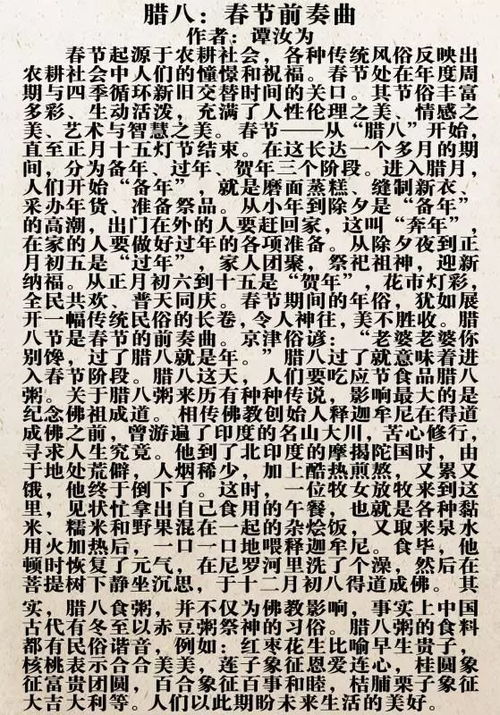 腊八：春节前奏曲
作者：谭汝为
春节起源于农耕社会，各种传统风俗反映出
农耕社会中人们的憧憬和祝福。春节处在年度周
期与四季循环新旧交替时间的关口。其节俗丰富
多彩、生动活泼，充满了人性伦理之美、情感之
美、艺术与智慧之美。春节——从“腊八”开始，
直至正月十五灯节结束。在这长达一个多月的期
间，分为备年、过年、贺年三个阶段。进入腊月，
人们开始“备年”，就是磨面蒸糕、缝制新衣、
采办年货、准备祭品。从小年到除夕是“备年”
的高潮，出门在外的人要赶回家，这叫“奔年”，
在家的人要做好过年的各项准备。从除夕夜到正
月初五是“过年”，家人团聚，祭祀祖神，迎新
纳福。从正月初六到十五是“贺年”，花市灯彩，
全民共欢、普天同庆。春节期间的年俗，犹如展
开一幅传统民俗的长卷，令人神往，美不胜收。腊
八节是春节的前奏曲。京津俗谚：“老婆老婆你
别馋，过了腊八就是年。”腊八过了就意味着进
入春节阶段。腊八这天，人们要吃应节食品腊八
粥。关于腊八粥来历有种种传说，影响最大的是
纪念佛祖成道。相传佛教创始人释迦牟尼在得道
成佛之前，曾游遍了印度的名山大川，苦心修行，
寻求人生究竟。他到了北印度的摩揭陀国时，由
于地处荒僻，人烟稀少，加上酷热煎熬，又累又
饿，他终于倒下了。这时，一位牧女放牧来到这
里，见状忙拿出自己食用的午餐，也就是各种黏
米、糯米和野果混在一起的杂烩饭，又取来泉水
用火加热后，一口一口地喂释迦牟尼。食毕，他
顿时恢复了元气，在尼罗河里洗了个澡，然后在
菩提树下静坐沉思，于十二月初八得道成佛。其
实，腊八食粥，并不仅为佛教影响，事实上中国
古代有冬至以赤豆粥祭神的习俗。腊八粥的食料
都有民俗谐音，例如：红枣花生比喻早生贵子，
核桃表示合合美美，莲子象征恩爱连心，桂圆象
征富贵团圆，百合象征百事和睦，桔脯栗子象征
大吉大利等。人们以此期盼未来生活的美好。